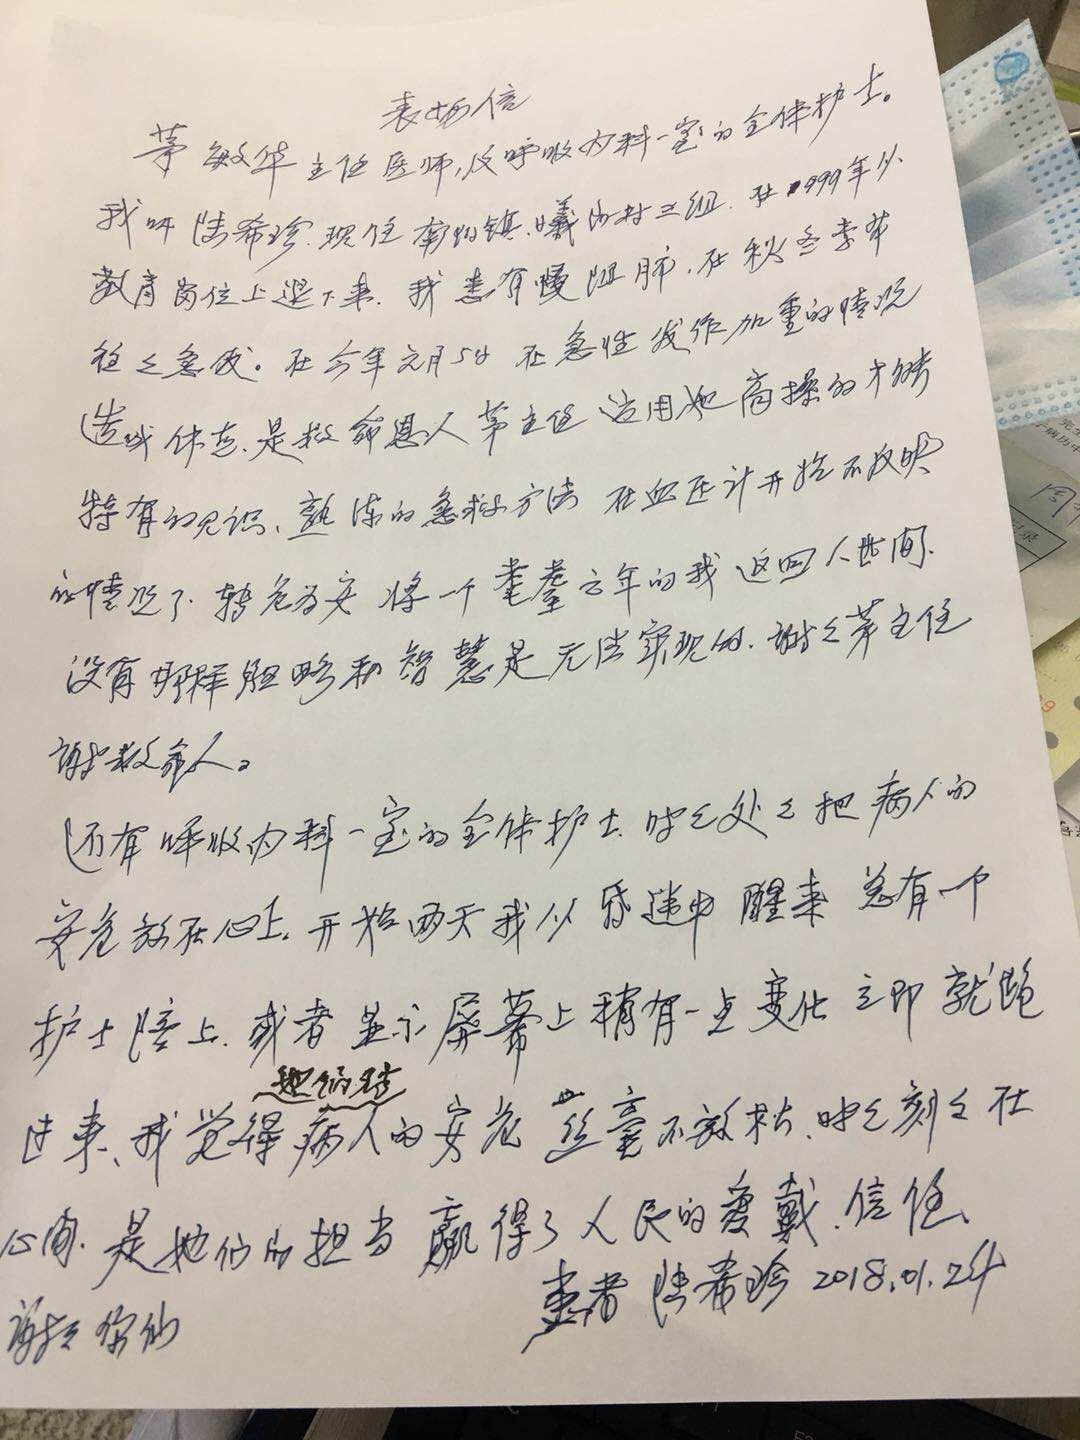 表扬信
茅敏华主任医师,及呼吸内科一室的全体护士。
我叫陆希珍.现住南阳镇.曦内村三组.在1999年从
教育岗位上退下来.我患有慢阻肺.在秋冬季节
往之急发。在今年元月5日在急性发作加重的情况
造成休克.是救命恩人茅主任运用她高操的才能
特有的见识、熟练的急救方法在血压计开始不反映
的情况下.转危为安将一个耄耋之年的我返回人世间.
没有那样胆略和智慧是无法实现的.谢之茅主任
谢救命人。
还有呼吸内科一室的全体护士.时之处之把病人的
安危放在心上.开始两天我从昏迷中醒来总有一个
护士陪上.或者显示屏幕上稍有一点变化立即就跑
过来、我觉得她们对病人的安危丝毫不放松.时之刻之在
心间.是她们的担当赢得了人民的爱戴.信任、
患者陆希珍 2018.01.24
谢之你们
周